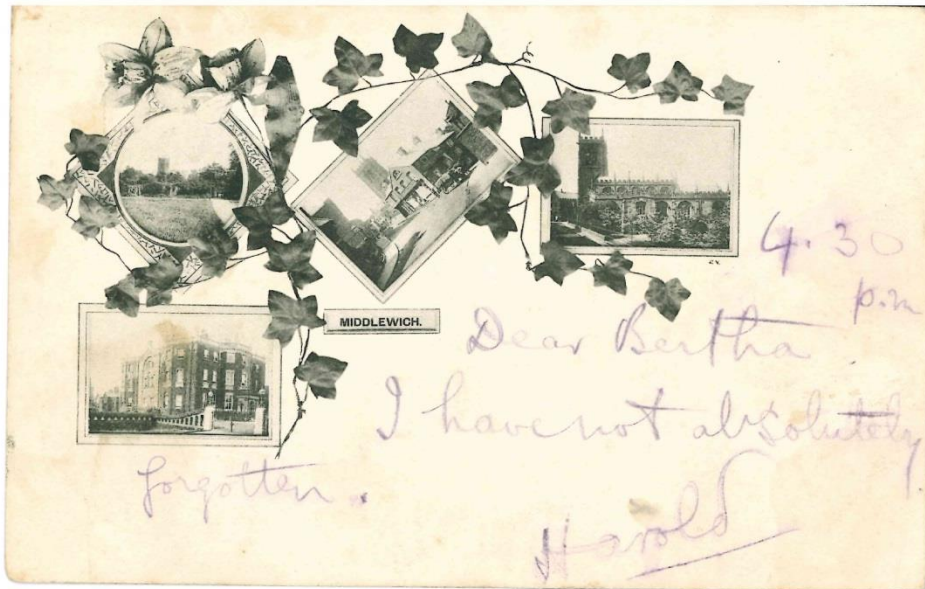 MIDDLEWICH.
4.30
p.m
Dear Bertha
I have not absolutely
forgotten.
Harold